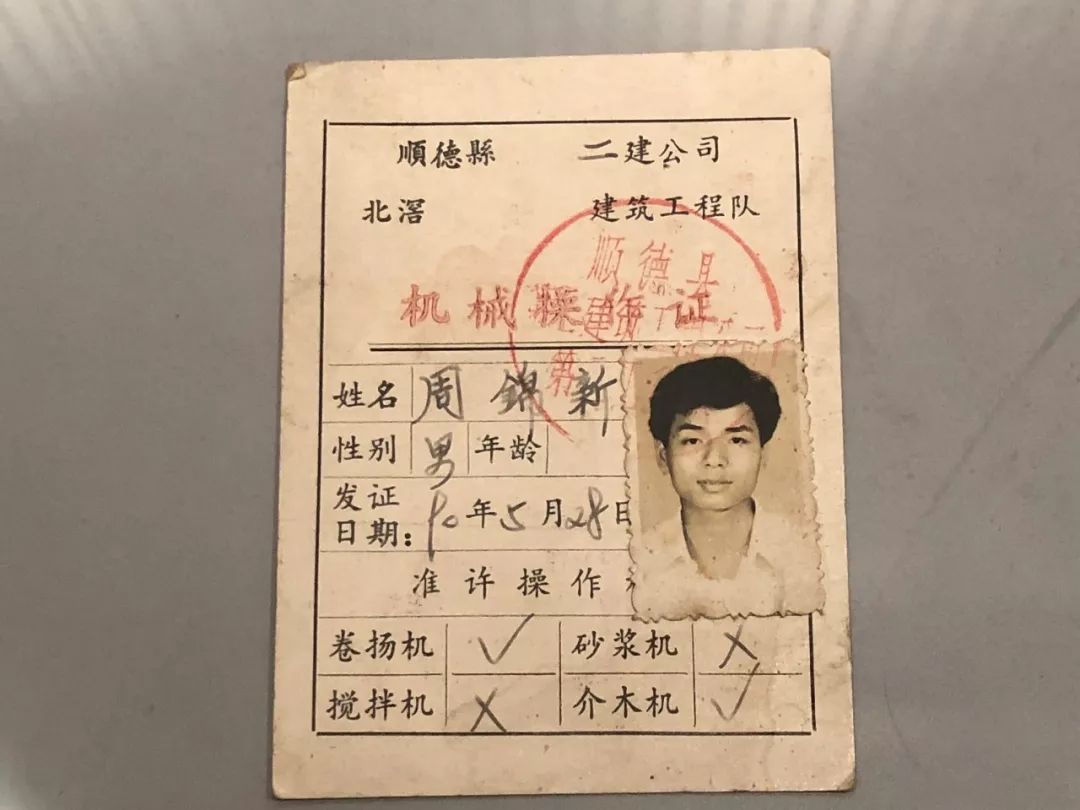 順德縣 二建公司
北滘 建筑工程队
机械操作证
顺德县
姓名 周錦新
性别 男 年龄
发证日期: 90年5月28日
准许操作
卷扬机 ✓ 砂浆机 X
搅拌机 X 介木机 ✓